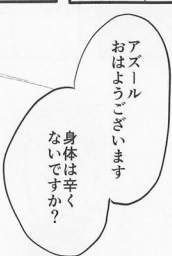 アズール
おはようございます
身体は辛く
ないですか？